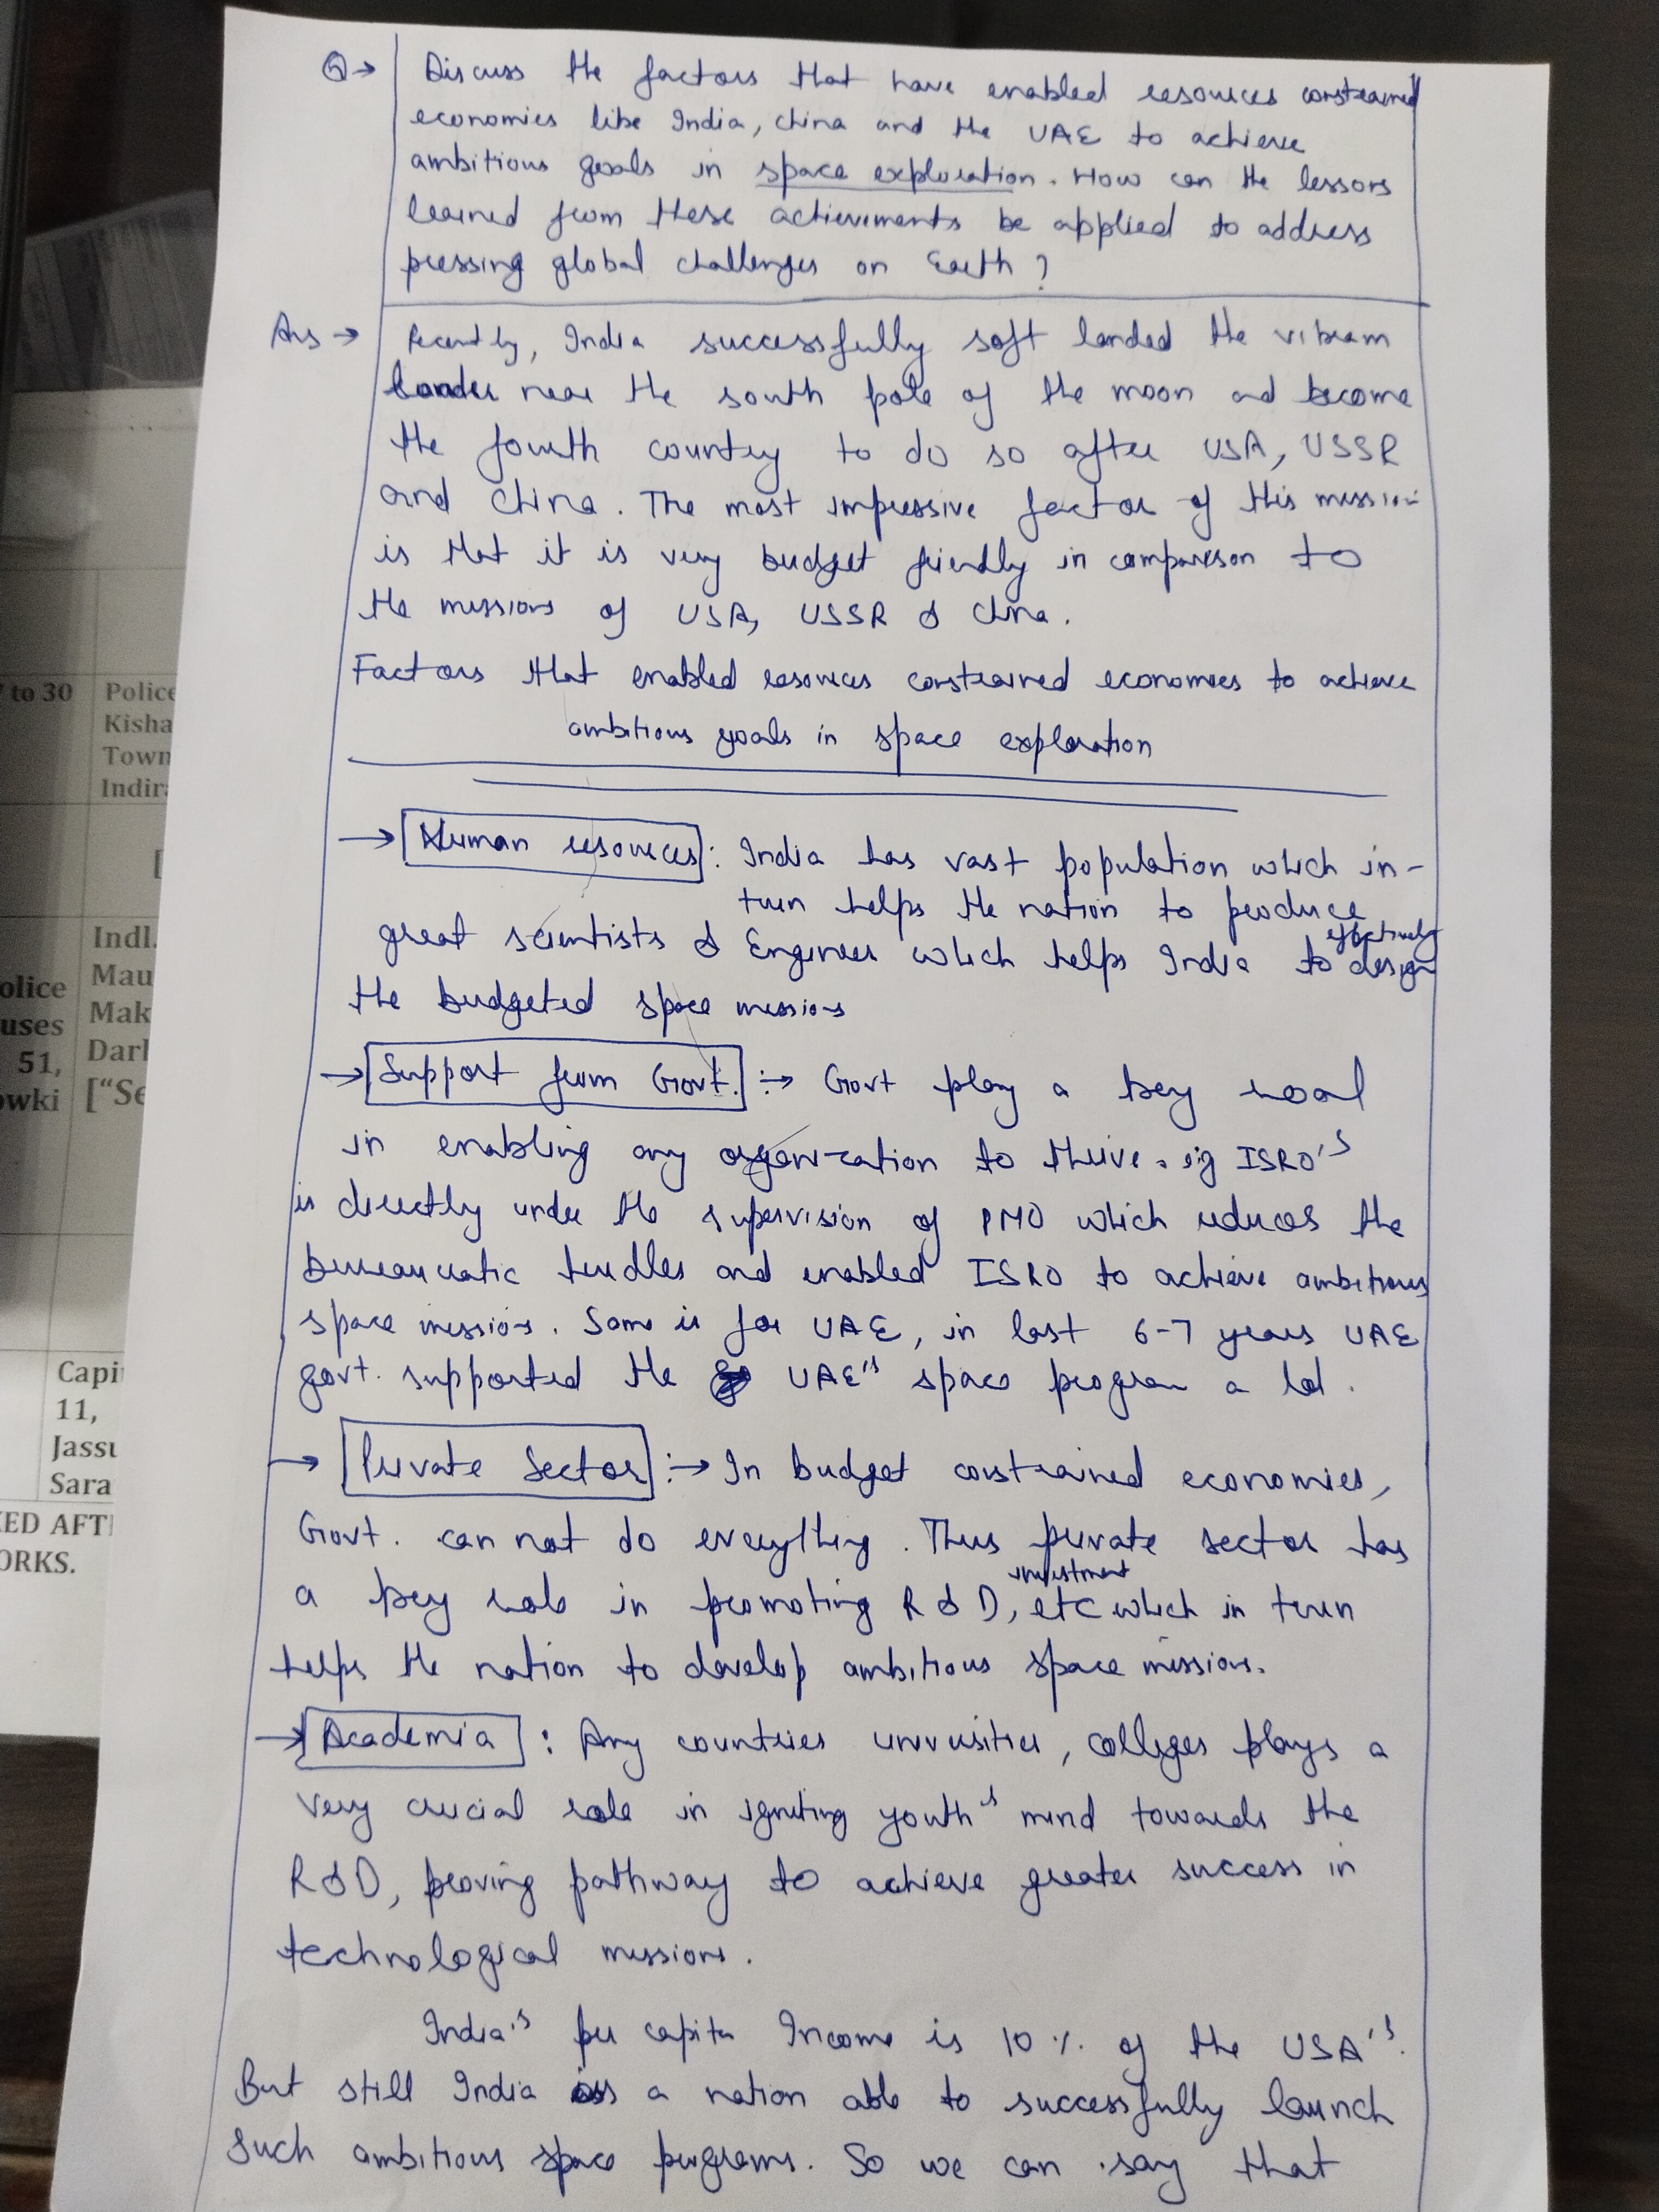 Q→ Discuss the factors that have enabled resources constrained
economies like India, China and the UAE to achieve
ambitious goals in space exploration. How can the lessons
learned from these achievements be applied to address
pressing global challenges on Earth?
Ans → Recently, India successfully soft landed the vikram
lander near the south pole of the moon and become
the fourth country to do so after USA, USSR
and China. The most impressive factor of this mission
is that it is very budget friendly in comparison to
the missions of USA, USSR & China.
Factors that enabled resources constrained economies to achieve
ambitious goals in space exploration
→ Human resources: India has vast population which in-
turn helps the nation to produce
great scientists & Engineers which helps India to effectively design
the budgeted space missions
→ Support from Govt. :→ Govt play a key roal
in enabling any organization to thrive. eg ISRO's
is directly under the supervision of PMO which reduces the
bureaucratic hurdles and enabled ISRO to achieve ambitious
space missions. Same is for UAE, in last 6-7 years UAE
govt. supported the UAE's space program a lot.
→ Private Sector :→ In budget constrained economies,
Govt. can not do everything. Thus private sector has
a key role in promoting R&D, investment etc which in turn
helps the nation to develop ambitious space missions.
→ Academia : Any countries universities, colleges plays a
very crucial role in igniting youth's mind towards the
R&D, proving pathway to achieve greater success in
technological missions.
India's per capita Income is 10% of the USA's.
But still India as a nation able to successfully launch
such ambitious space programs. So we can say that
7 to 30
Police
Kisha
Town
Indir
[
Indl.
Mau
Mak
Darl
["Se
olice
uses
51,
owki
Capi
11,
Jassu
Sara
KED AFT
ORKS.